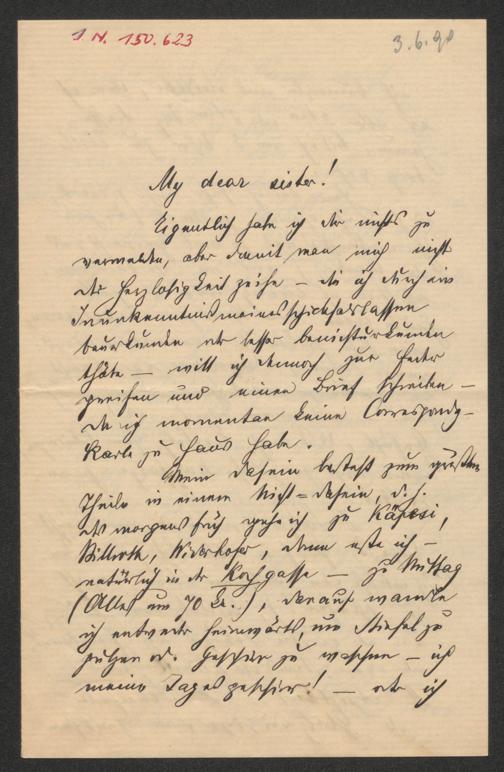 J. N. 150.623
3.6.90
My dear sister!
Eigentlich habe ich dir nichts zu
vermelden, aber damit man mich nicht
der Herzlosigkeit zeihe – die ich durch ein
Inunkenntnis meines Schicksals lassen
beurkunden oder besser benichturkunden
thäte – will ich dennoch zur Feder
greifen und einen Brief schreiben –
da ich momentan keine Correspondz-
Karte zu Haus habe.
Mein Dasein besteht zum größten
Theile in einem Nicht=dasein, d. h.
morgens früh gehe ich zu
Billroth, Widerhofer, dann esse ich –
natürlich in der Kochgasse – zu Mittag
(Alles um 70 Kr.), darauf wandle
ich entweder heimwärts, um Stiefel zu
putzen od. Geschirr zu waschen – ich
meine Tagesgeschirr! – oder ich